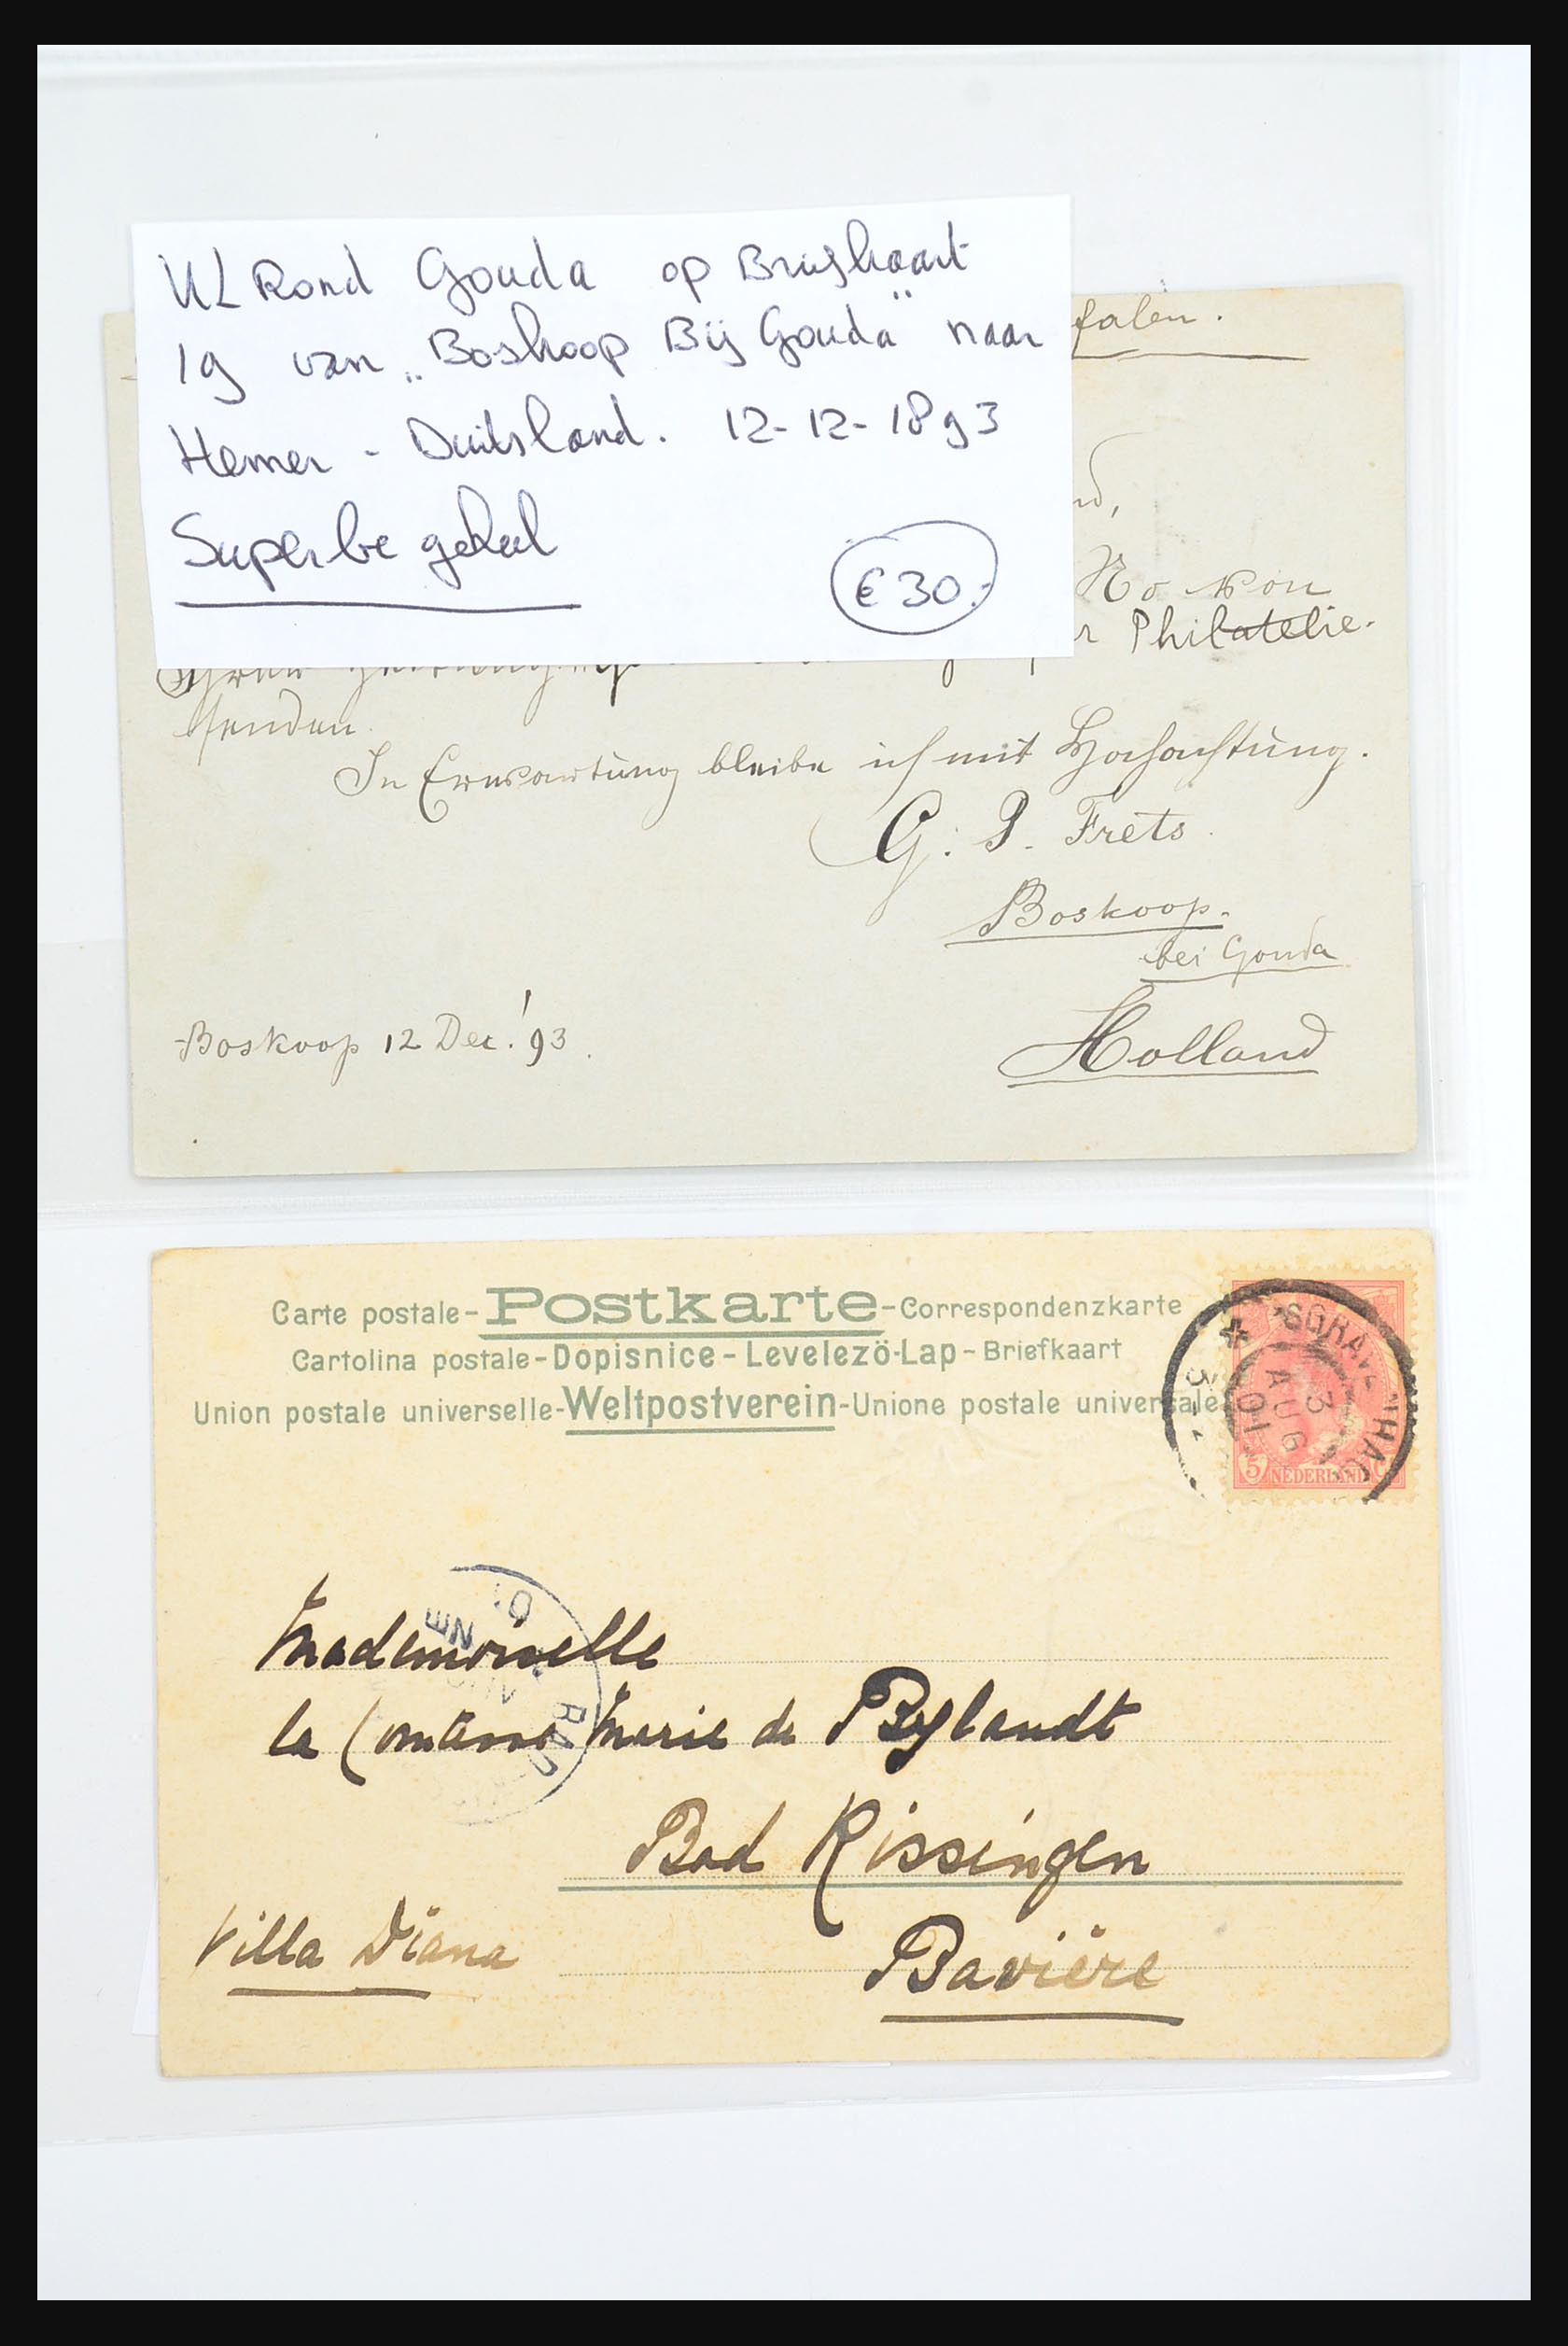 KL Rond Gouda op Briefkaart
Ig van „Boskoop Bij Gouda" naar
Hemer - Duitsland. 12-12-1893
Superbe geheel
€30.-
falen.
nd,
No von
r Philatelie.
senden.
In Erwartung bleibe ich mit Hochachtung.
G. P. Frets.
Boskoop.
bei Gouda
Holland
Boskoop 12 Dec! 93.
Carte postale-Postkarte-Correspondenzkarte
Cartolina postale-Dopisnice-Levelezö-Lap-Briefkaart
Union postale universelle-Weltpostverein-Unione postale universale
'SGRAVENHAG
3 AUG 01
5-
5 NEDERLAND C
BAD
Mademoiselle
la Comtesse Marie de Bylandt
Bad Kissingen
Villa Diana
Bavière